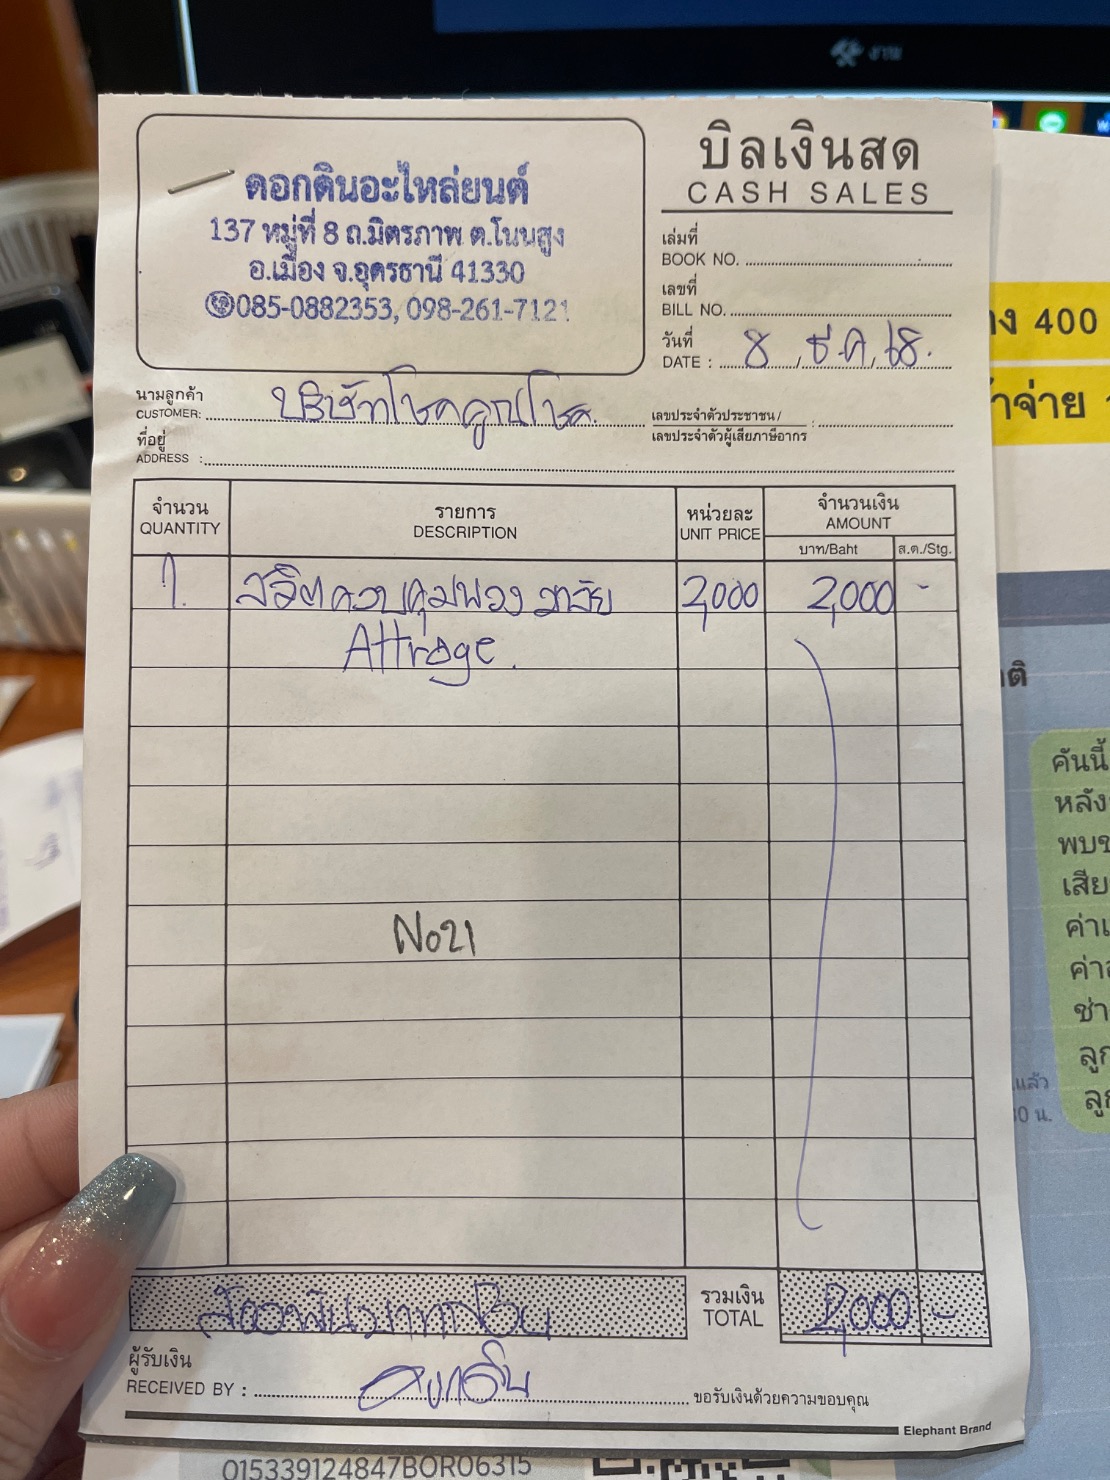 งาน
บิลเงินสด
CASH SALES
ดอกดินอะไหล่ยนต์
137 หมู่ที่ 8 ถ.มิตรภาพ ต.โนนสูง
อ.เมือง จ.อุดรธานี 41330
085-0882353, 098-261-7121
เล่มที่
BOOK NO.
เลขที่
BILL NO.
วันที่
DATE : 8 ธ.ค. 68.
นามลูกค้า
CUSTOMER: บริษัทโชคคูณโชค.
เลขประจำตัวประชาชน/
เลขประจำตัวผู้เสียภาษีอากร :
ที่อยู่
ADDRESS :
จำนวน รายการ หน่วยละ จำนวนเงิน
QUANTITY DESCRIPTION UNIT PRICE AMOUNT
บาท/Baht ส.ต./Stg.
1. สวิตควบคุมพวงมาลัย 2,000 2,000 -
Attrage.
No21
สองพันบาทถ้วน
รวมเงิน
TOTAL 2,000 -
ผู้รับเงิน
RECEIVED BY : ดอกดิน ขอรับเงินด้วยความขอบคุณ
Elephant Brand
015339124847BOR06315
าง 400
าจ่าย
ติ
คันนี้
หลัง
พบ
เสีย
ค่า
ค่า
ช่า
ลูก
ลูก
แล้ว
0 น.